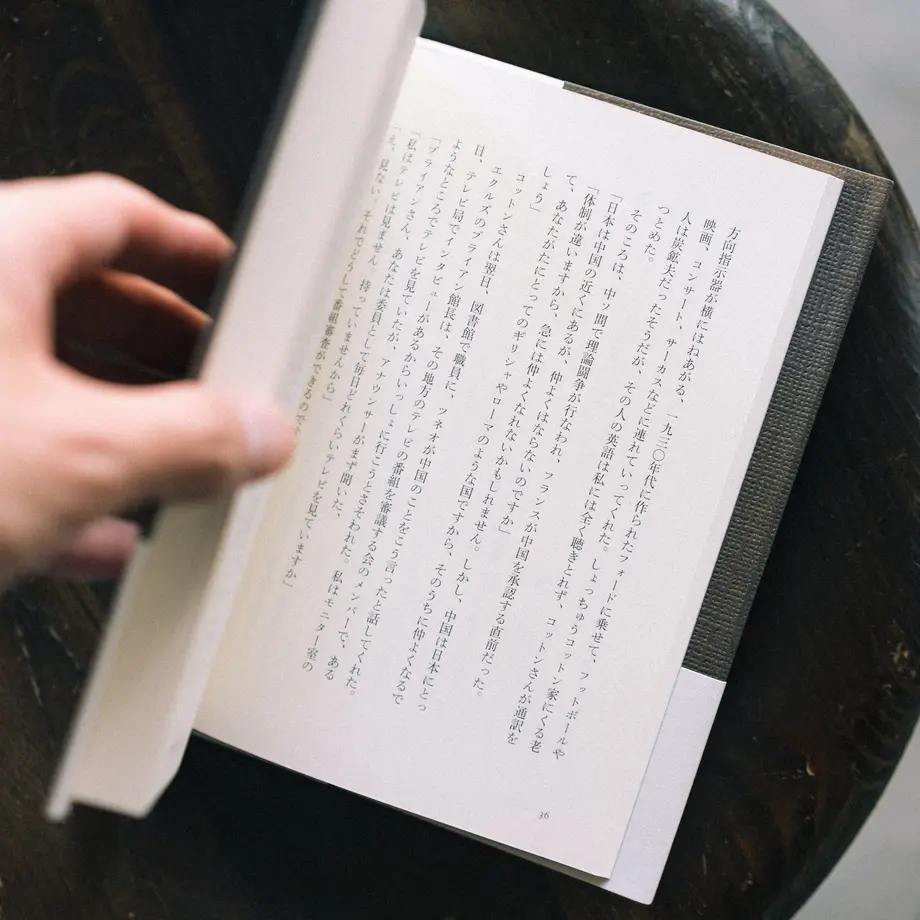 方向指示器が横にはねあがる、一九三〇年代に作られたフォードに乗せて、フットボールや
映画、コンサート、サーカスなどに連れていってくれた。しょっちゅうコットン家にくる老
人は炭鉱夫だったそうだが、その人の英語は私には全く聴きとれず、コットンさんが通訳を
つとめた。
そのころは、中ソ間で理論闘争が行なわれ、フランスが中国を承認する直前だった。
「日本は中国の近くにあるが、仲よくはならないのですか」
「体制が違いますから、急には仲よくなれないかもしれません。しかし、中国は日本にとっ
て、あなたがたにとってのギリシャやローマのような国ですから、そのうちに仲よくなるで
しょう」
コットンさんは翌日、図書館で職員に、ツネオが中国のことをこう言ったと話してくれた。
エクルズのブライアン館長は、その地方のテレビの番組を審議する会のメンバーで、ある
日、テレビ局でインタビューがあるからいっしょに行こうとさそわれた。私はモニター室の
ようなところでテレビを見ていたが、アナウンサーがまず聞いた、
「ブライアンさん、あなたは委員として毎日どれくらいテレビを見ていますか」
「私はテレビは見ません。持っていませんから」
「え、見ない。それでどうして番組審査ができるので
36